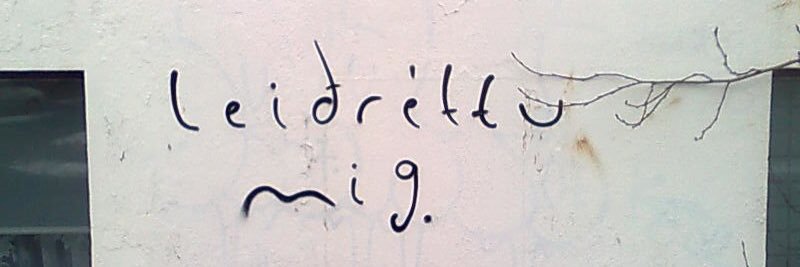 leiðréttu
mig.